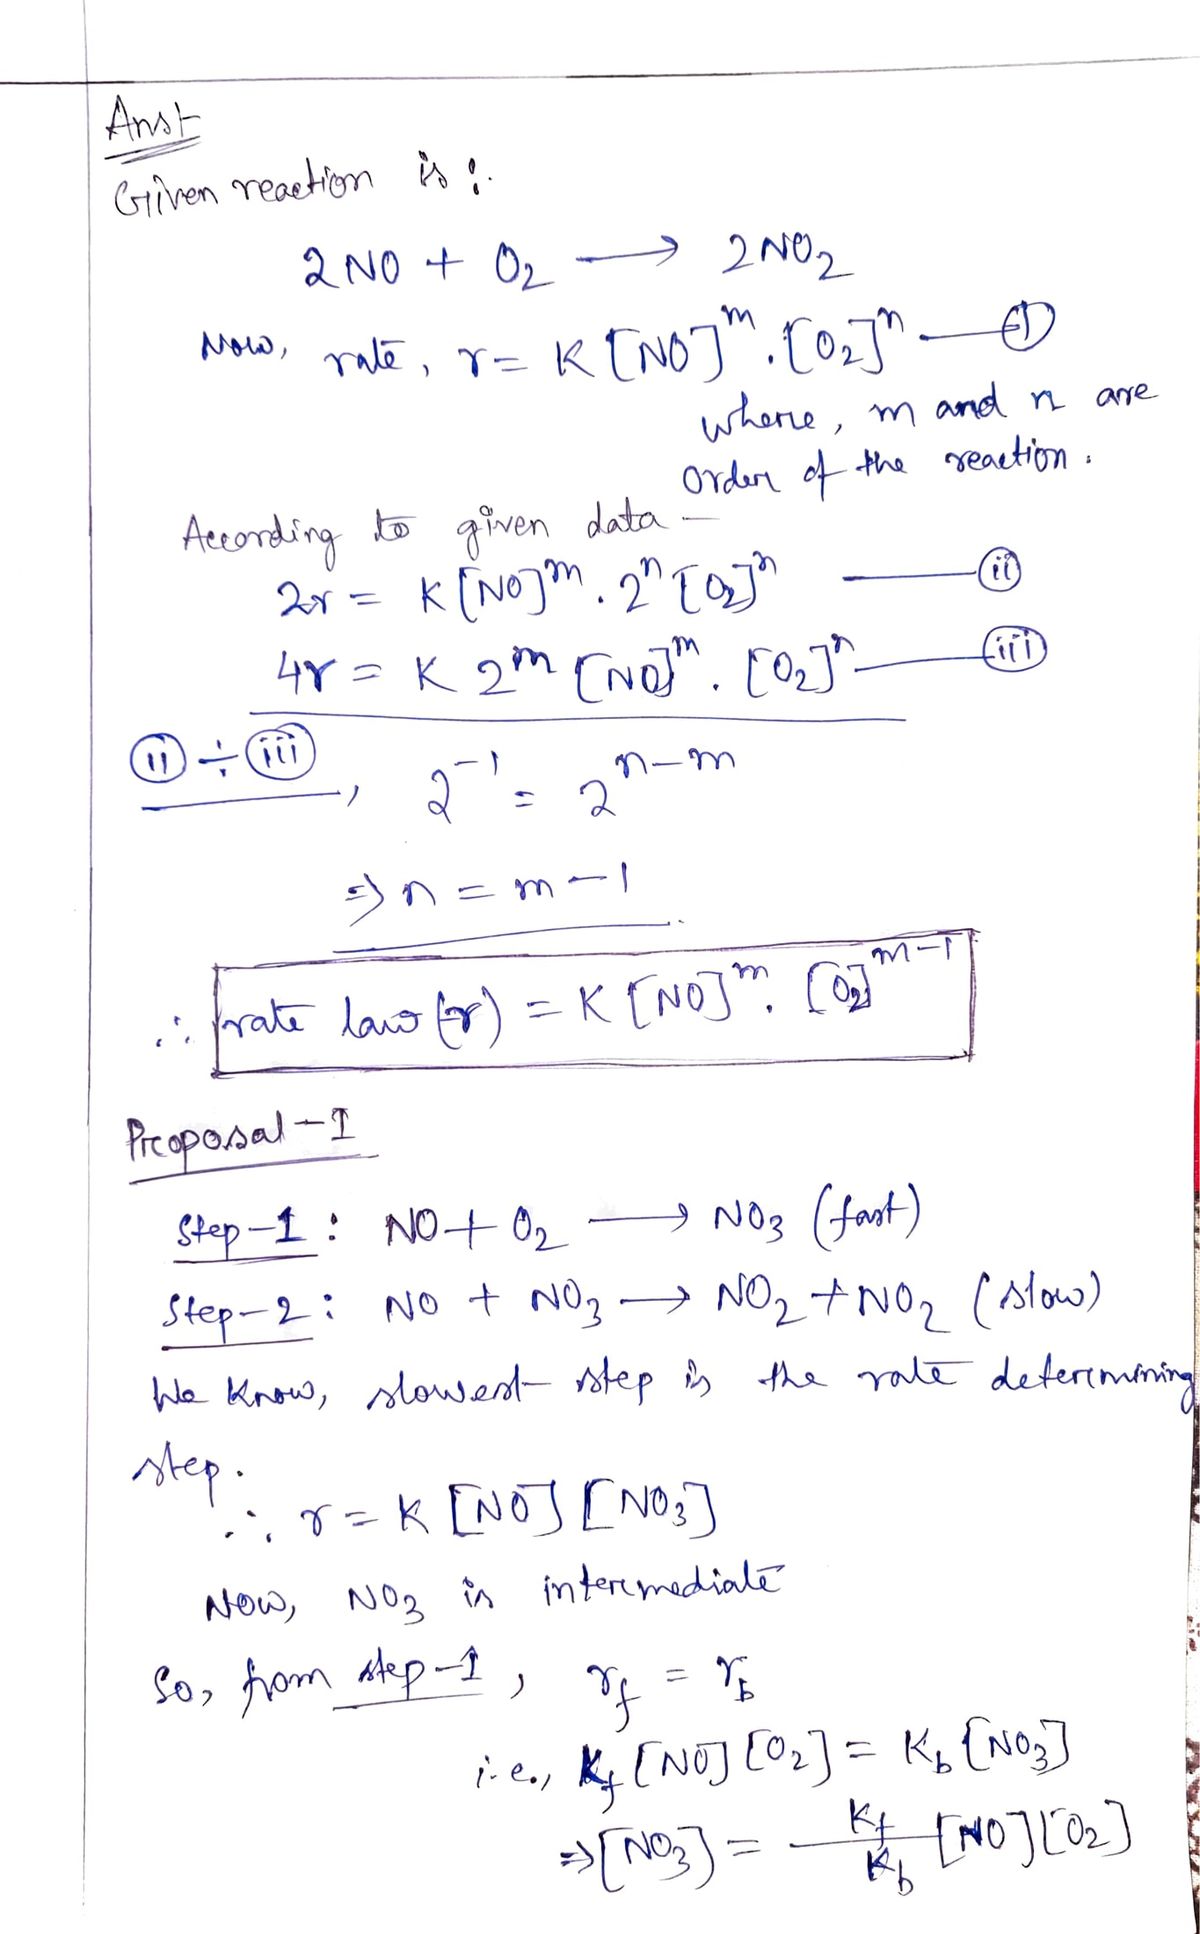 Ans:-
Given reaction is :-
2NO + O2 ⟶ 2NO2
Now, rate, r = K [NO]^m . [O2]^n —— (i)
where, m and n are
order of the reaction.
According to given data —
2r = K [NO]^m . 2^n [O2]^n —— (ii)
4r = K 2^m [NO]^m . [O2]^n —— (iii)
(ii) ÷ (iii) , 2^-1 = 2^n-m
⇒ n = m - 1
∴ rate law (r) = K [NO]^m . [O2]^m-1
Proposal - I
Step-1 : NO + O2 ⟶ NO3 (fast)
Step-2 : NO + NO3 ⟶ NO2 + NO2 (slow)
We know, slowest step is the rate determining
step.
∴ r = K [NO] [NO3]
Now, NO3 is intermediate
So, from step-1 , rf = rb
i.e., Kf [NO] [O2] = Kb [NO3]
⇒ [NO3] = Kf/Kb [NO] [O2]